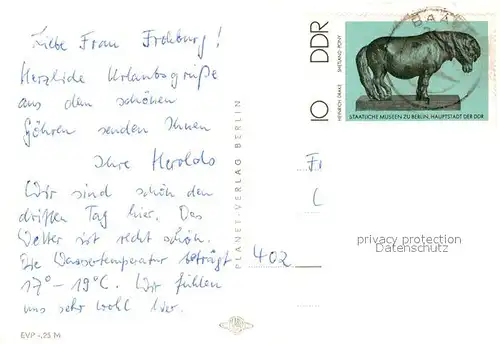 Liebe Frau Frohburg!
Herzliche Urlaubsgrüße
aus dem schönen
Göhren senden Ihnen
Ihre Herolds
Wir sind schon den
dritten Tag hier. Das
Wetter ist recht schön.
Die Wassertemperatur beträgt
17° - 19°C. Wir fühlen
uns sehr wohl hier.
EVP -,25 M
PLANET-VERLAG BERLIN
402
10 DDR
HEINRICH DRAKE SHETLAND-PONY
STAATLICHE MUSEEN ZU BERLIN, HAUPTSTADT DER DDR
BAA
Fr
privacy protection
Datenschutz